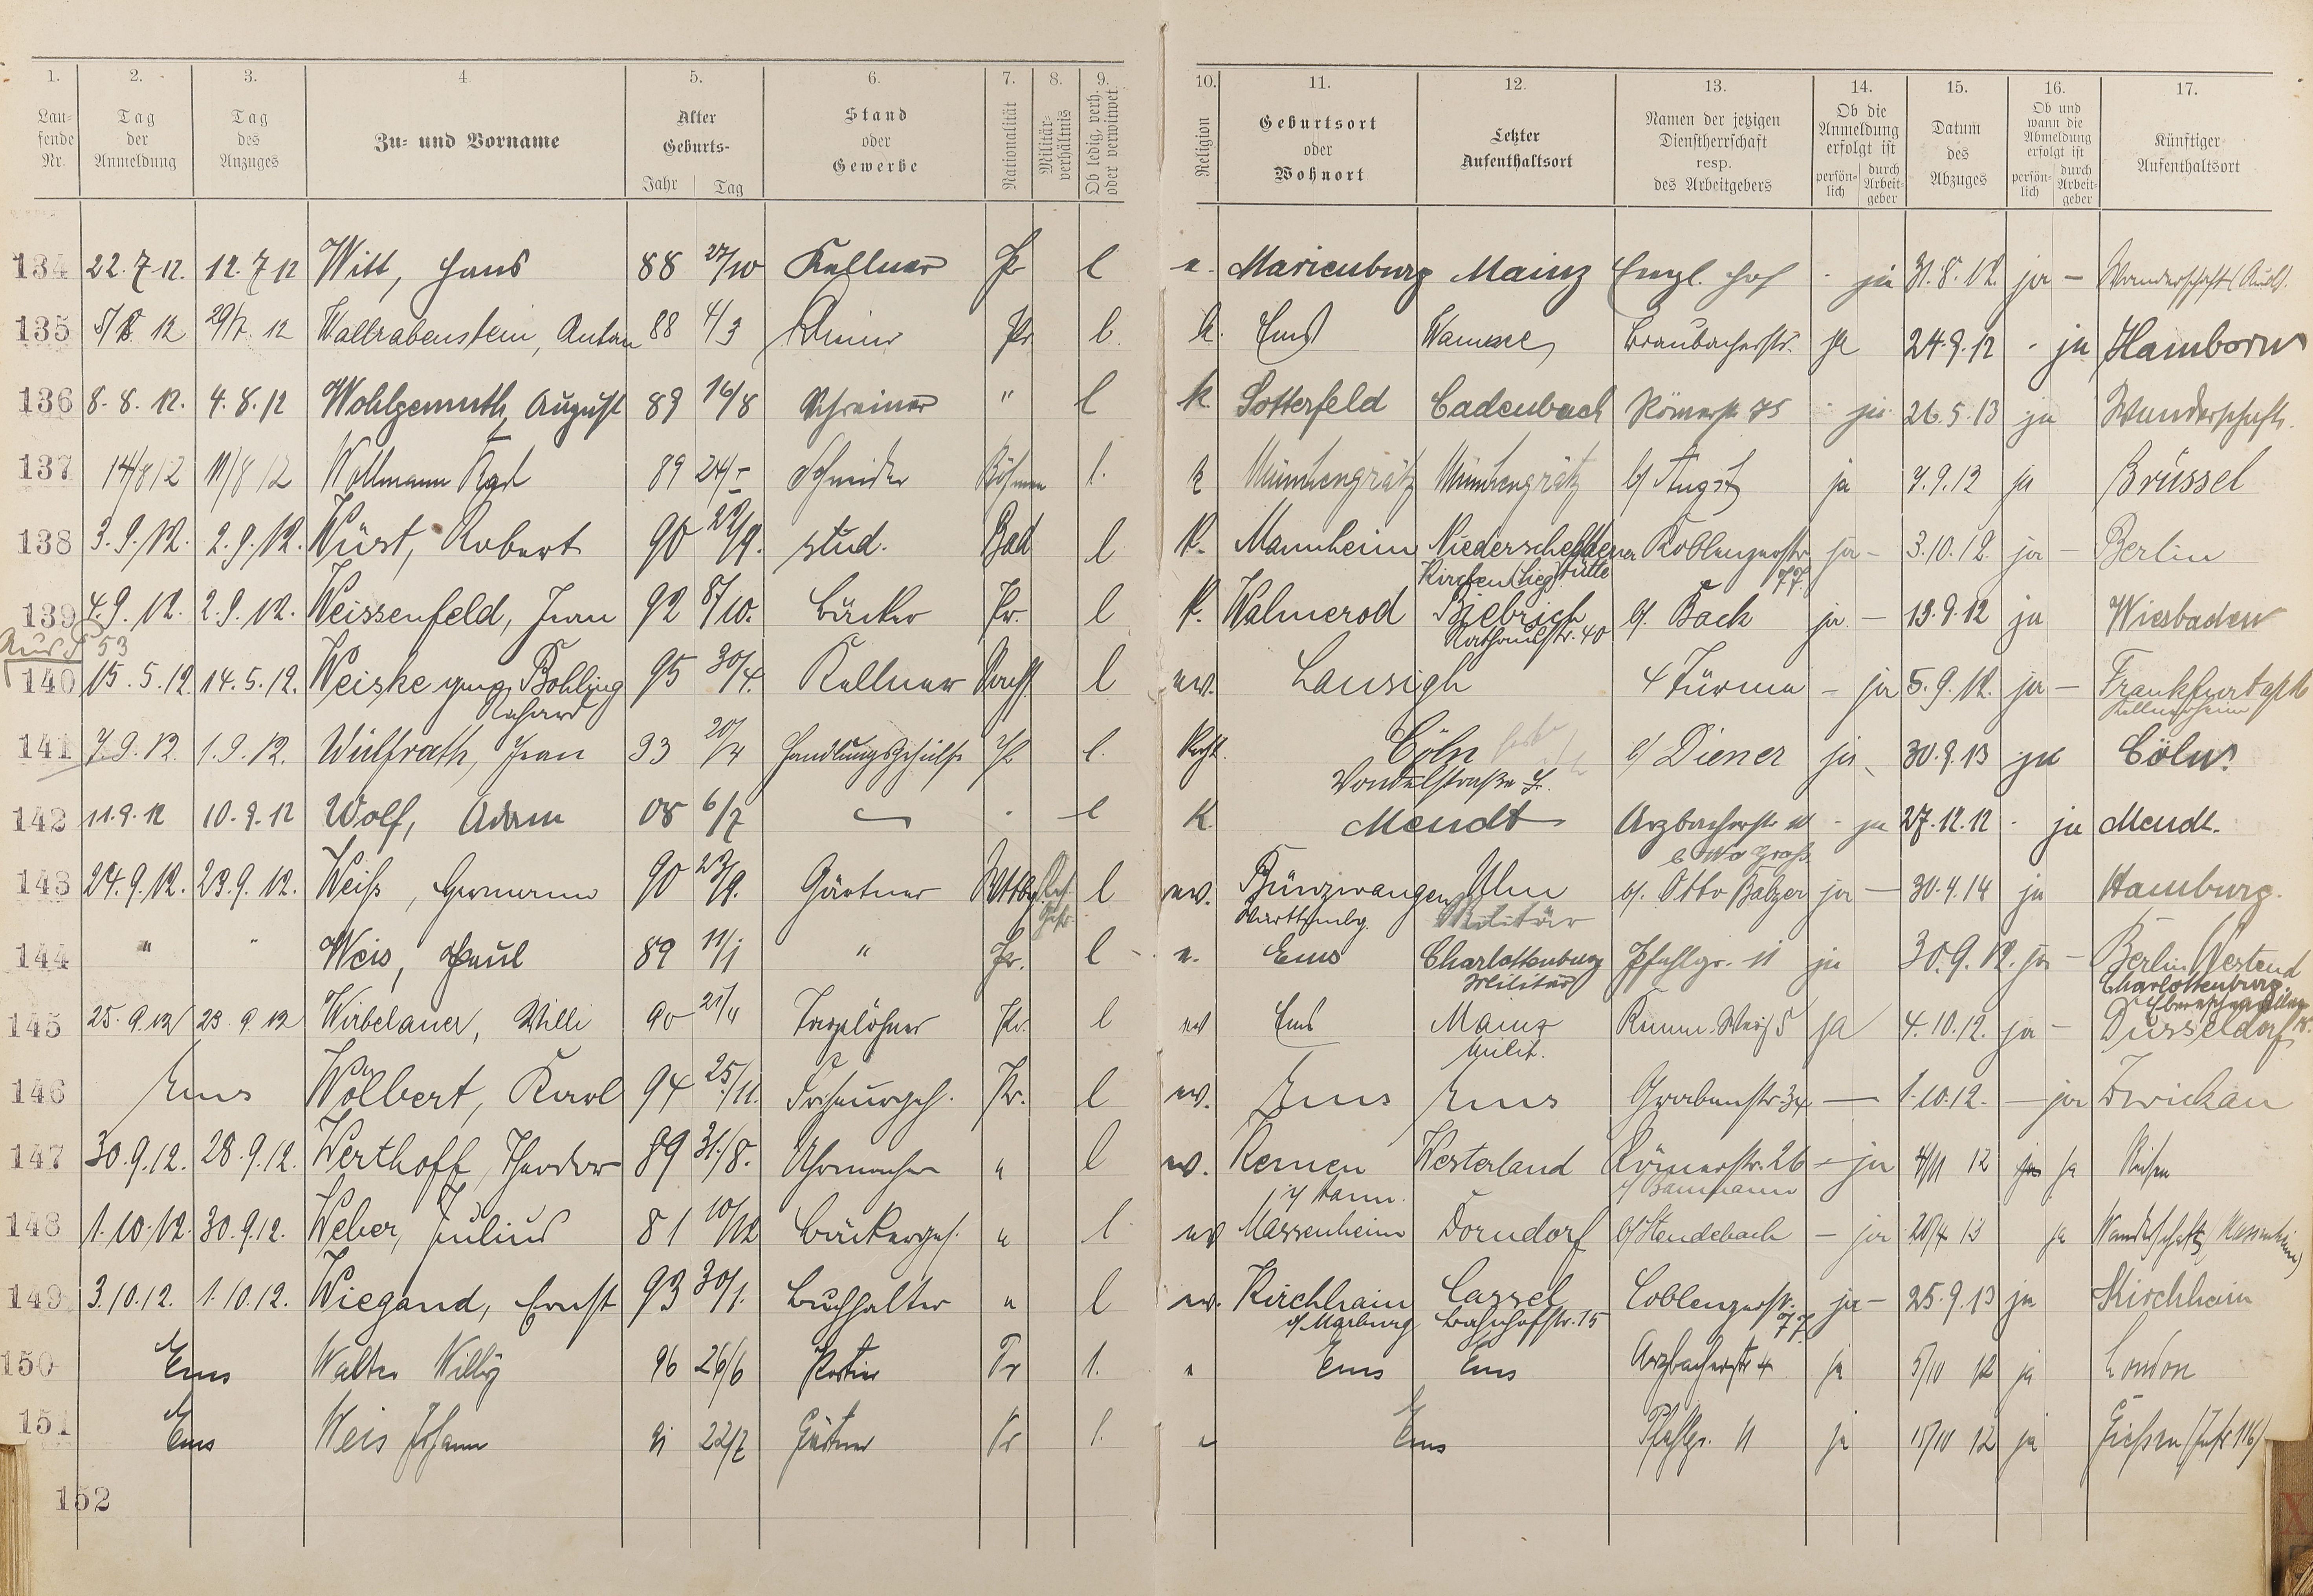 1. 2. 3. 4. 5. 6. 7. 8. 9. 10. 11. 12. 13. 14. 15. 16. 17.
Laufende Nr. Tag der Anmeldung Tag des Anzuges Zu- und Vorname Alter Geburts- Jahr Tag Stand oder Gewerbe Nationalität Militär-verhältnis Ob ledig, verh. oder verwitwet Religion Geburtsort oder Wohnort Letzter Aufenthaltsort Namen der jetzigen Dienstherrschaft resp. des Arbeitgebers Ob die Anmeldung erfolgt ist persön-lich durch Arbeit-geber Datum des Abzuges Ob und wann die Abmeldung erfolgt ist persön-lich durch Arbeit-geber Künftiger Aufenthaltsort
134 22.7 12. 12.7 12 Witt, Hans 88 27/10 Kellner Pr l e. Marienburg Mainz Engl. Hof - ja 31.8.12. ja - Wanderschaft
135 12 29/7. 12 Wallrabenstein, Anton 88 4/3 Pr. l. k. Ems Braubacherstr. ja 24.9.12 - ja Hamborn
136 8.8.12. 4.8.12 Wohlgemuth, August 89 16/8 Schreiner " l k Sotterfeld Cadenbach Römerstr 75 - ja 26.5.13 ja Wanderschaft.
137 14/8 12 11/8 12 Wollmann Karl 89 24/- Schneider Böhmen l. k Münchengrätz Münchengrätz b/ Augst ja 7.9.12 ja Brüssel
138 3.9.12. 2.9.12. Wüst, Robert 90 22/9. stud. Bad l k. Mannheim Koblenzerstr. 77. ja - 3.10.12. ja - Berlin
Kirchen (Sieg)
139 4.9.12. 2.9.12. Weissenfeld, Jean 92 8/10. Bäcker Pr. l k. Walmerod Biebrich b/. Back ja - 13.9.12 ja Wiesbaden
Rathausstr. 40
Aus S 53
140 15.5.12. 14.5.12. Weiske gng. Bohling 95 30/4. Kellner l ev. Lausigk 4 Türme - ja 5.9.12. ja - Frankfurt a/M
Richard Kellnerheim
141 7.9.12. 1.9.12. Wülfrath, Jean 93 20/4 Handlungsgehülfe l. Cöln b/ Diener ja 30.9.13 ja Cöln.
Vondelstraße 7.
142 11.9.12 10.9.12 Wolf, Adam 08 6/7 - l K. Mendt Arzbacherstr - ja 27.12.12 - ja Mendt.
143 24.9.12. 23.9.12. Weiß, Hermann 90 23/9. Gärtner Wttbg l ev. Bünzwangen Ulm b/. Otto Balzer ja - 30.4.14 ja Hamburg.
Württembg. Militär
144 " " Weis, Paul 89 11/1 " Pr. l - e. Ems Charlottenburg Pfahlgr. 11 ja 30.9.12. ja - Berlin Westend
Militär Charlottenburg
145 25.9.12 23.9.12 Wirbelauer, Willi 90 21/4 Tagelöhner Pr. l ev Ems Mainz 5 ja 4.10.12. ja - Düsseldorf
Milit.
146 Ems Wölbert, Karl 94 25./11. Friseurgeh. Pr. l ev. Ems Ems Grabenstr. 34 — 1.10.12. — ja Zwickau
147 30.9.12. 28.9.12. Werthoff, Theodor 89 31./8. Uhrmacher " l ev. Remen Westerland Römerstr. 26 - ja 4/11 12 ja
b/ Baumann
148 1.10.12. 30.9.12. Weber, Julius 81 10/12 Bäckergeh. " l ev Massenheim Dorndorf b/ Hendebach - ja 20/4 13 ja Wanderschaft, Massenheim)
149 3.10.12. 1.10.12. Wiegand, Ernst 93 30/1. Buchhalter " l ev. Kirchhain Cassel Coblenzerstr. 77. ja - 25.9.13 ja Kirchhain
b/ Marburg Bahnhofstr. 15
150 Ems Walter Willy 96 26/6 Pr l. " Ems Ems Arzbacherstr 4 ja 5/10 12 ja London
151 Ems Weis Johann 91 22/7 Gärtner Pr l. " Ems Pfahlgr. 11 ja 15/10 12 ja Gießen (Inf. 116)
152